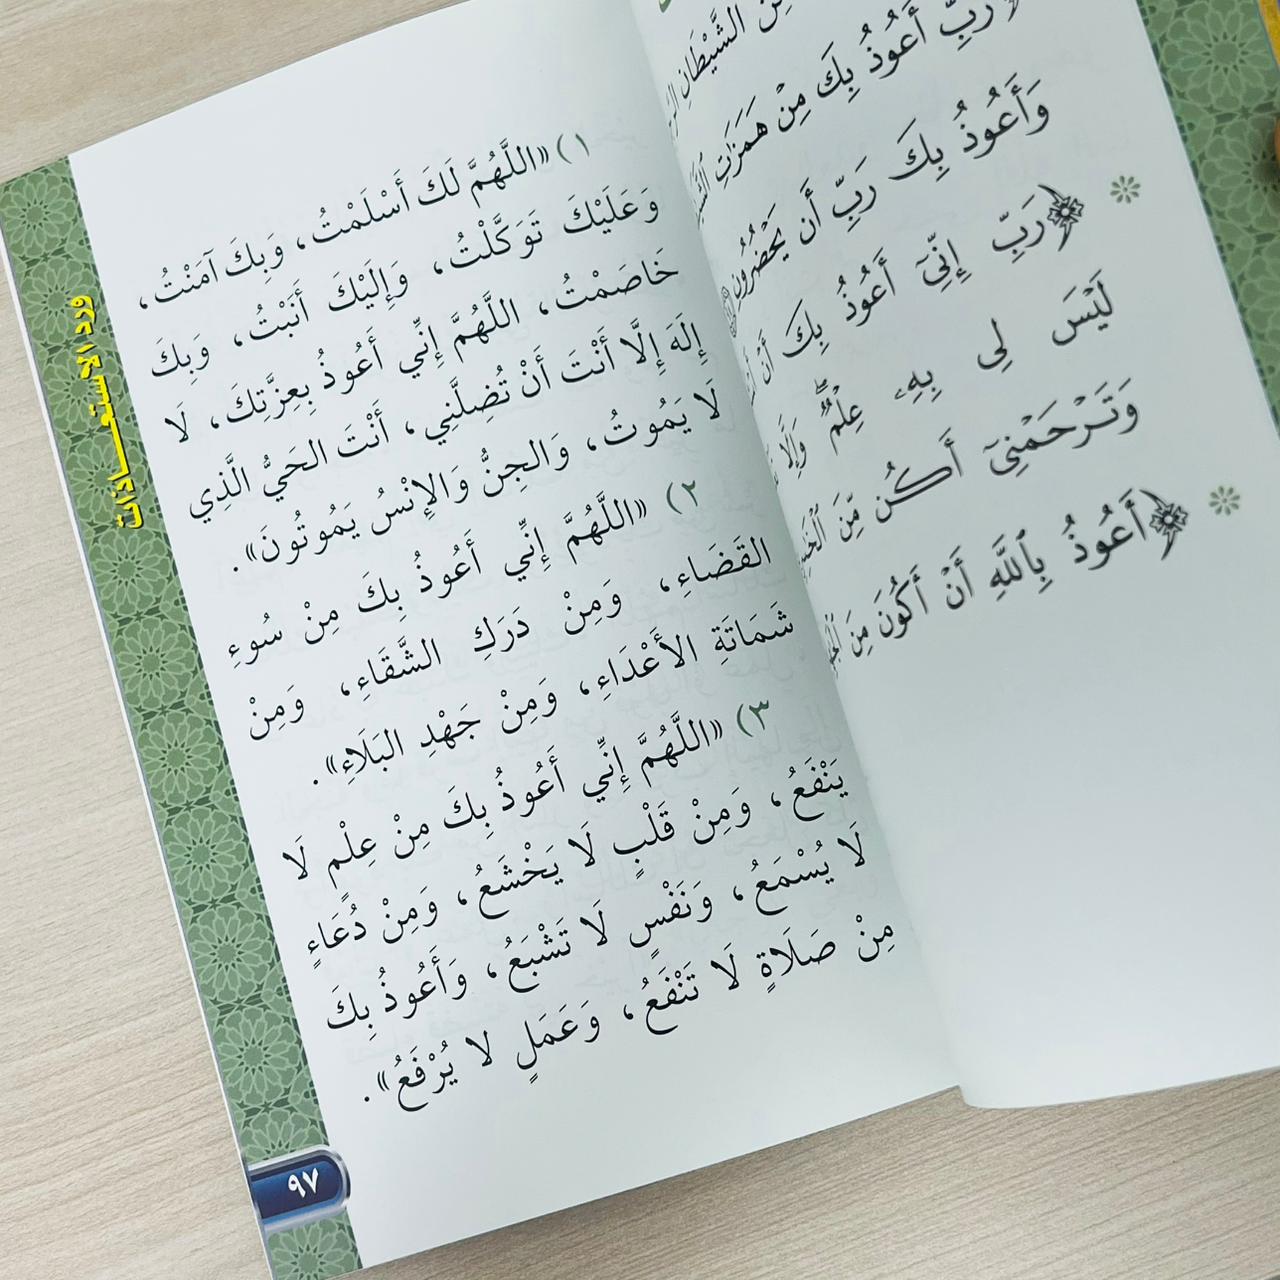 مِنَ الشَّيْطَانِ
رَبِّ أَعُوذُ بِكَ مِنْ هَمَزَٰتِ
وَأَعُوذُ بِكَ رَبِّ أَن يَحْضُرُونِ
﴿رَبِّ إِنِّىٓ أَعُوذُ بِكَ أَنْ
لَيْسَ لِى بِهِۦ عِلْمٌ ۖ وَإِلَّا
وَتَرْحَمْنِىٓ أَكُن مِّنَ
﴿أَعُوذُ بِٱللَّهِ أَنْ أَكُونَ مِنَ
١) «اللَّهُمَّ لَكَ أَسْلَمْتُ، وَبِكَ آمَنْتُ،
وَعَلَيْكَ تَوَكَّلْتُ، وَإِلَيْكَ أَنَبْتُ، وَبِكَ
خَاصَمْتُ، اللَّهُمَّ إِنِّي أَعُوذُ بِعِزَّتِكَ، لَا
إِلَهَ إِلَّا أَنْتَ أَنْ تُضِلَّنِي، أَنْتَ الحَيُّ الَّذِي
لَا يَمُوتُ، وَالجِنُّ وَالإِنْسُ يَمُوتُونَ».
٢) «اللَّهُمَّ إِنِّي أَعُوذُ بِكَ مِنْ سُوءِ
القَضَاءِ، وَمِنْ دَرَكِ الشَّقَاءِ، وَمِنْ
شَمَاتَةِ الأَعْدَاءِ، وَمِنْ جَهْدِ البَلَاءِ».
٣) «اللَّهُمَّ إِنِّي أَعُوذُ بِكَ مِنْ عِلْمٍ لَا
يَنْفَعُ، وَمِنْ قَلْبٍ لَا يَخْشَعُ، وَمِنْ دُعَاءٍ
لَا يُسْمَعُ، وَنَفْسٍ لَا تَشْبَعُ، وَأَعُوذُ بِكَ
مِنْ صَلَاةٍ لَا تَنْفَعُ، وَعَمَلٍ لا يُرْفَعُ».
ورد الاستعـــاذات
٩٧